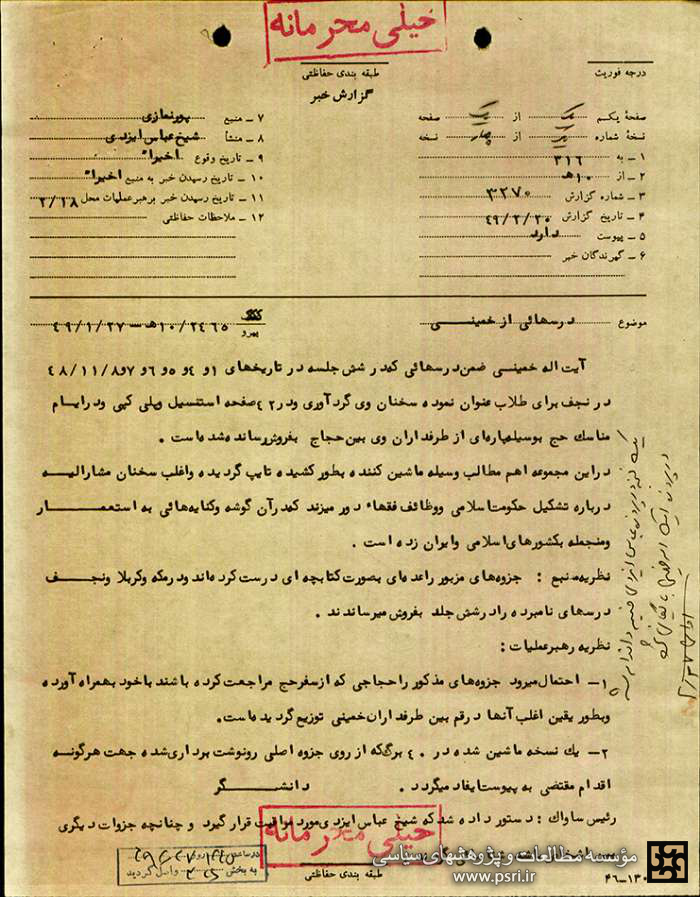 خیلی محرمانه
طبقه بندی حفاظتی
درجه فوریت
گزارش خبر
صفحهٔ یکم یک از یک صفحه
نسخهٔ شماره یک از چهار نسخه
۱ – به ۳۱۶
۲ – از ۱۰ ه‍
۳ – شماره گزارش ۳۲۷۰
۴ – تاریخ گزارش ۴۹/۲/۲۰
۵ – پیوست دارد
۶ – گیرندگان خبر
۷ – منبع پورنمازی
۸ – منشأ شیخ عباس ایزدی
۹ – تاریخ وقوع اخیراً
۱۰ – تاریخ رسیدن خبر به منبع اخیراً
۱۱ – تاریخ رسیدن خبر برهبر عملیات محل ۲/۱۸
۱۲ – ملاحظات حفاظتی
موضوع درسهائی از خمینی
پیرو ۱۰/۲۴۶۵ ه‍ – ۴۹/۱/۲۷
آیت اله خمینی ضمن درسهائی که در شش جلسه در تاریخهای ۱ و ۴ و ۵ و ۶ و ۷ و ۴۸/۱۱/۸
در نجف برای طلاب عنوان نموده سخنان وی گردآوری و در ۲۴ صفحه استنسیل و پلی کپی و در ایام
مناسک حج بوسیله پاره‌ای از طرفداران وی بین حجاج بفروش رسانده شده است .
در این مجموعه اهم مطالب وسیله ماشین کننده بطور کشیده تایپ گردیده و اغلب سخنان مشارالیه
درباره تشکیل حکومت اسلامی و وظائف فقهاء دور میزند که در آن گوشه و کنایه‌هائی به استعمار
و منجمله بکشورهای اسلامی و ایران زده است .
نظریه منبع : جزوه‌های مزبور را عده‌ای بصورت کتابچه ای درست کرده‌اند و در مکه و کربلا و نجف
درسهای نامبرده را در شش جلد بفروش میرساندند .
نظریه رهبر عملیات :
۱– احتمال میرود جزوه‌های مذکور را حجاجی که از سفر حج مراجعت کرده باشند با خود بهمراه آورده
و بطور یقین اغلب آنها در قم بین طرفداران خمینی توزیع گردیده است.
۲– یک نسخه ماشین شده در ۴۰ برگ که از روی جزوه اصلی رونوشت برداری شده جهت هرگونه
اقدام مقتضی به پیوست ایفاد میگردد . دانشگر
رئیس ساواک : دستور داده شد که شیخ عباس ایزدی مورد مراقبت قرار گیرد و چنانچه جزوات دیگری
خیلی محرمانه
طبقه بندی حفاظتی
در ساعت روز
به بخش واصل گردید
۴۶–۱۳۰
مؤسسه مطالعات و پژوهشهای سیاسی
www.psri.ir